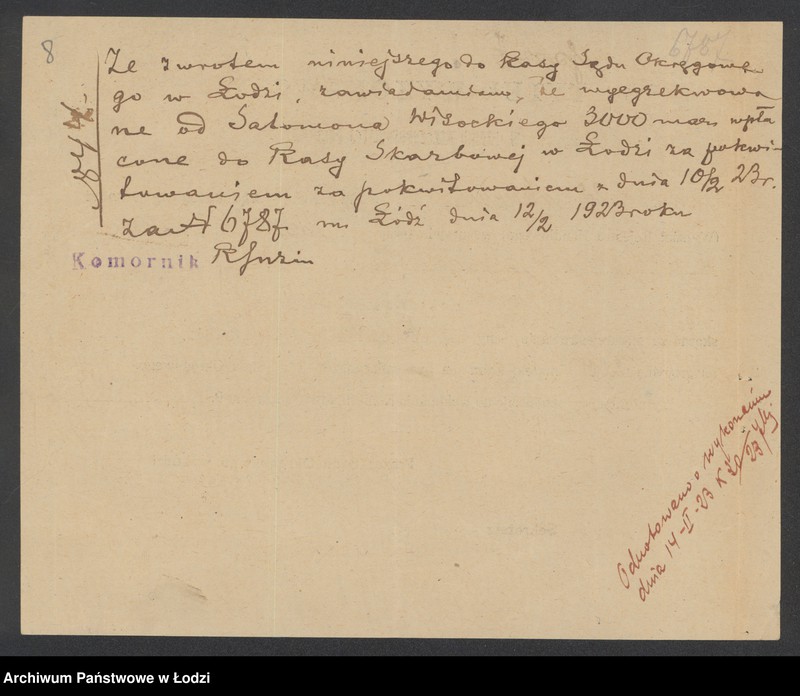 8
6787
Ze zwrotem niniejszego do Kasy Sądu Okręgowe-
go w Łodzi, zawiadamiam, że wyegzekwowa
ne od Salomona Wisockiego 3000 mar. wpła
cone do Kasy Skarbowej w Łodzi za pokwi-
towaniem za pokwitowaniem z dnia 10/2 23 r.
za N 6787. m. Łódź dnia 12/2 1923 roku
Komornik
Odnotowano o wykonaniu
dnia 14-II-23 K
Archiwum Państwowe w Łodzi